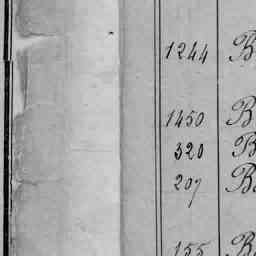 1244 B
1450 B
320 B
207 B
155 B